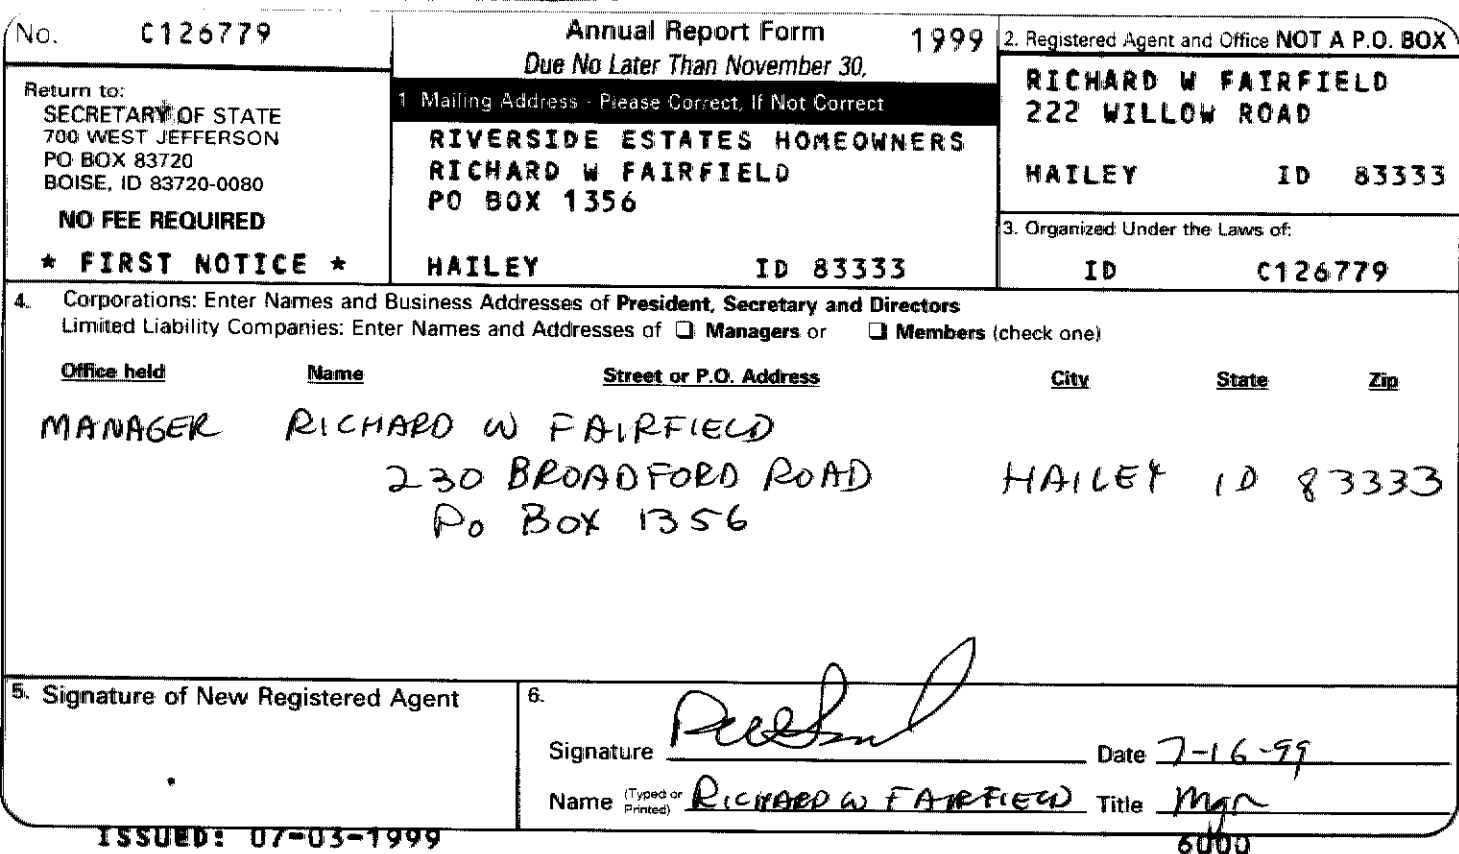 No. C126779
Return to:
SECRETARY OF STATE
700 WEST JEFFERSON
PO BOX 83720
BOISE, ID 83720-0080
NO FEE REQUIRED
* FIRST NOTICE *
Annual Report Form 1999
Due No Later Than November 30,
1 Mailing Address - Please Correct, If Not Correct
RIVERSIDE ESTATES HOMEOWNERS
RICHARD W FAIRFIELD
PO BOX 1356
HAILEY ID 83333
2. Registered Agent and Office NOT A P.O. BOX
RICHARD W FAIRFIELD
222 WILLOW ROAD
HAILEY ID 83333
3. Organized Under the Laws of:
ID C126779
4. Corporations: Enter Names and Business Addresses of President, Secretary and Directors
Limited Liability Companies: Enter Names and Addresses of ❑ Managers or ❑ Members (check one)
Office held Name Street or P.O. Address City State Zip
MANAGER RICHARD W FAIRFIELD
230 BROADFORD ROAD HAILEY ID 83333
Po Box 1356
5. Signature of New Registered Agent
6.
Signature Date 7-16-99
Name (Typed or Printed) RICHARD W FAIRFIELD Title Mgr
ISSUED: 07-03-1999 6000